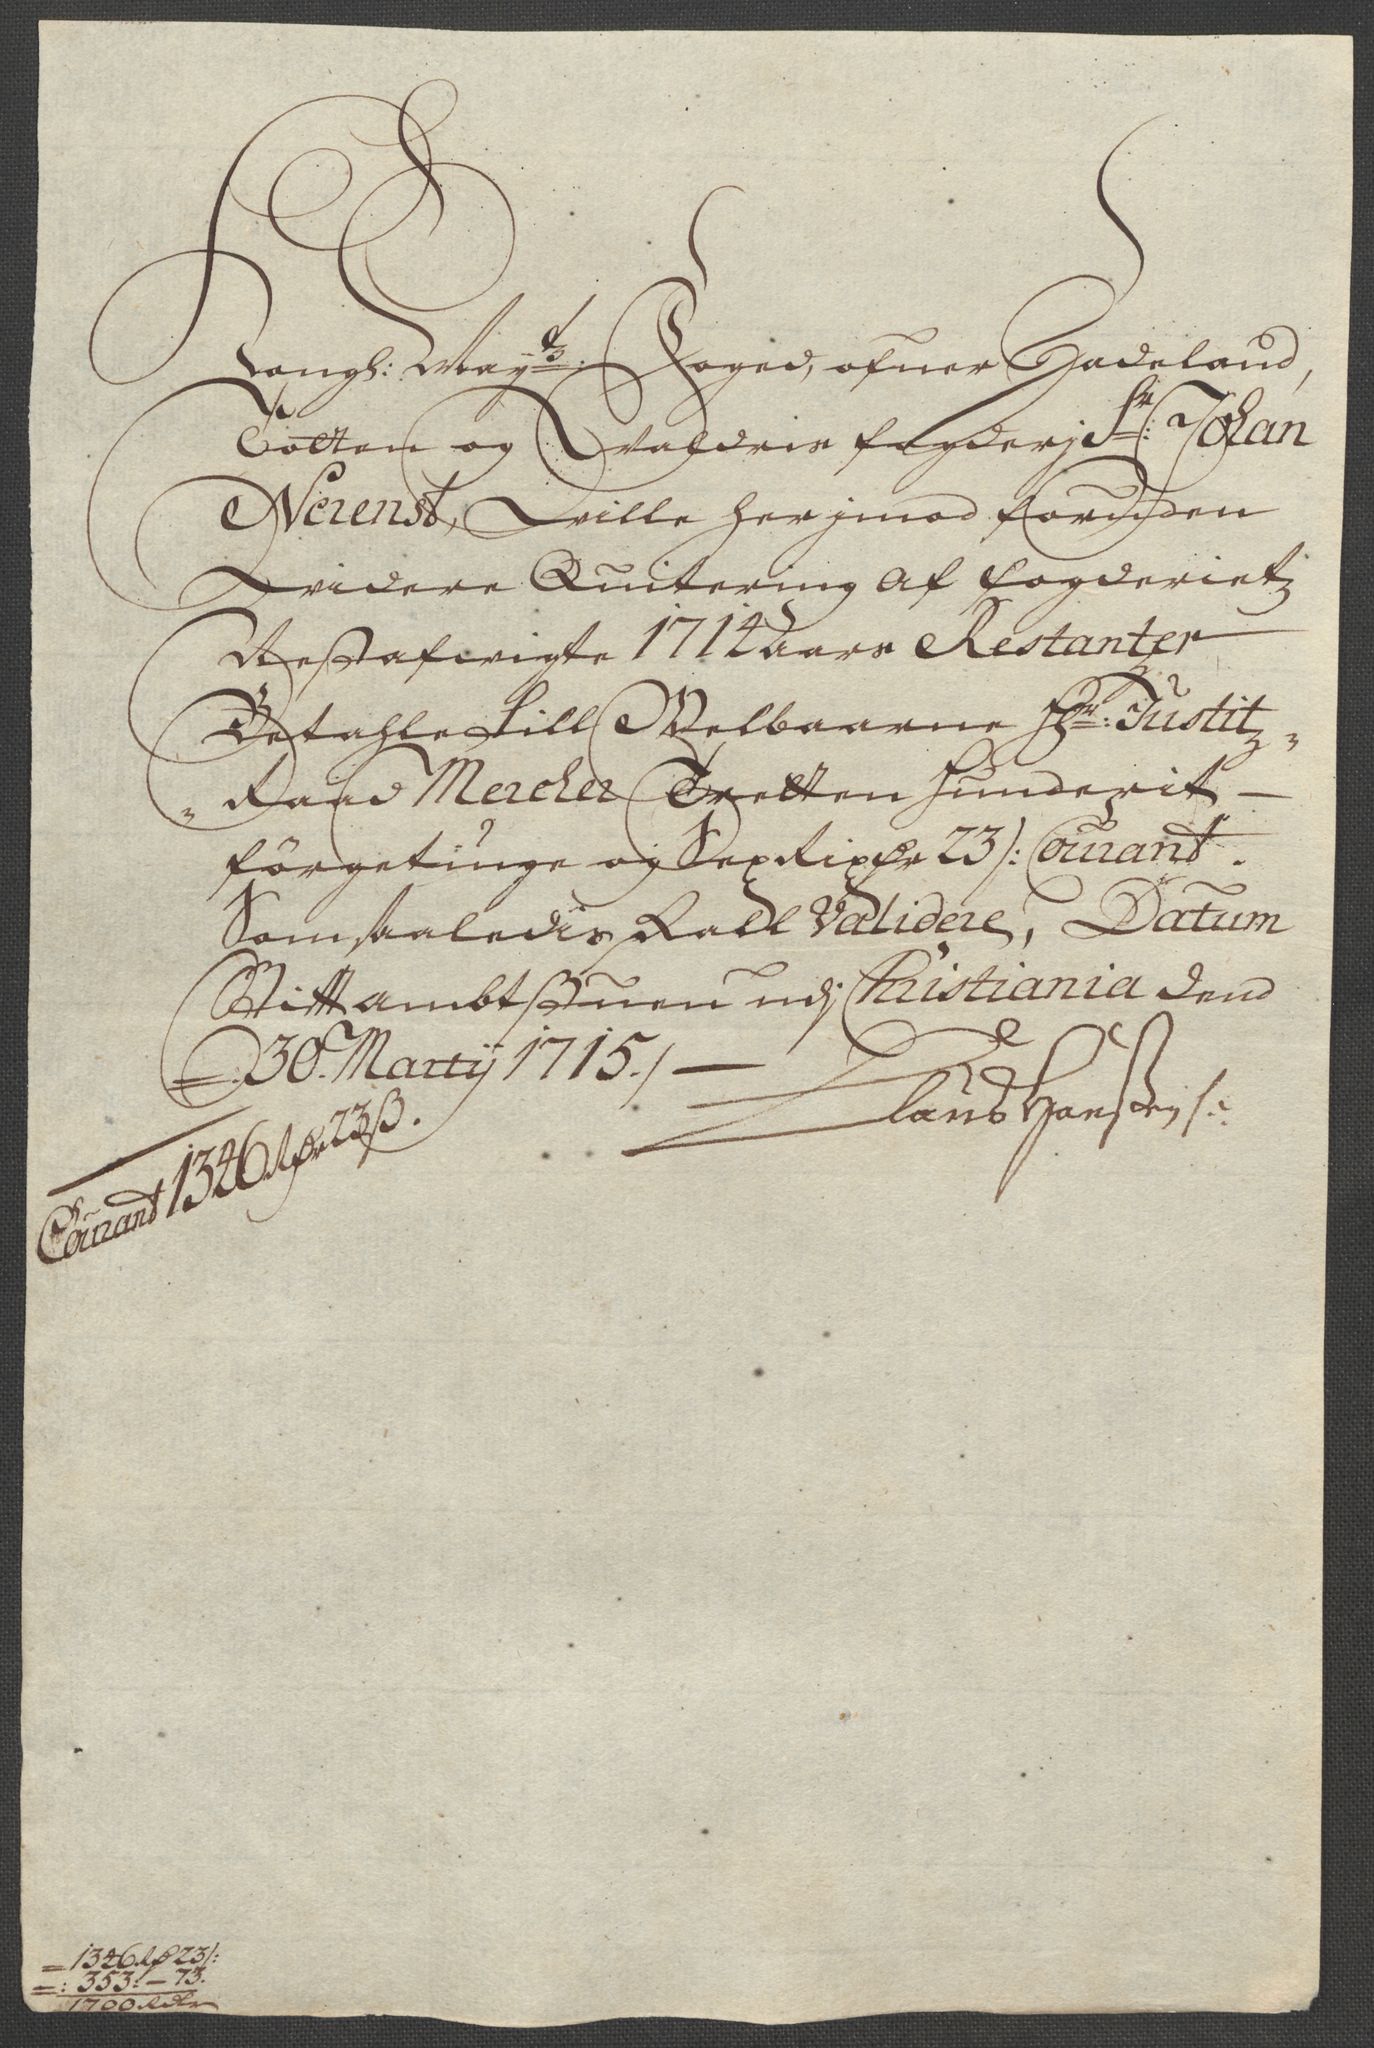 Kongl: May:ts: Foged, ofuer Hadeland,
Totten og Waldris fogderj Sr: Johan
Nerenst, Wille herjmod foruden
Widere Quitering af fogderietz
Resterafwigte 1714 aars Restantzer
Betahle till Welbaarne Hr: Justitz-
-Raad Mercher Tretten Hunderit
förgetinge og Sex Rixdr 23 s: Courant.
Som saaledis skall Validere, Datum
Stiftambtstuen udj Christiania dend
30. Martij 1715 ./
Claus Hansen
Courant 1346 Rdr 23 ß.
1346 Rd 23 s:
: 353: – 73.
1700 Rdr